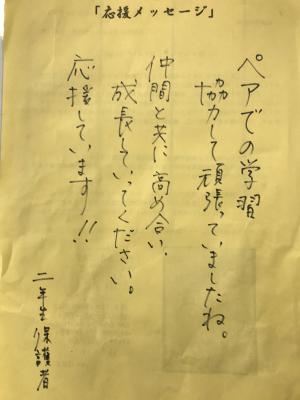 「応援メッセージ」
ペアでの学習
協力して頑張っていましたね。
仲間と共に高め合い、
成長していってください。
応援しています!!
二年生保護者